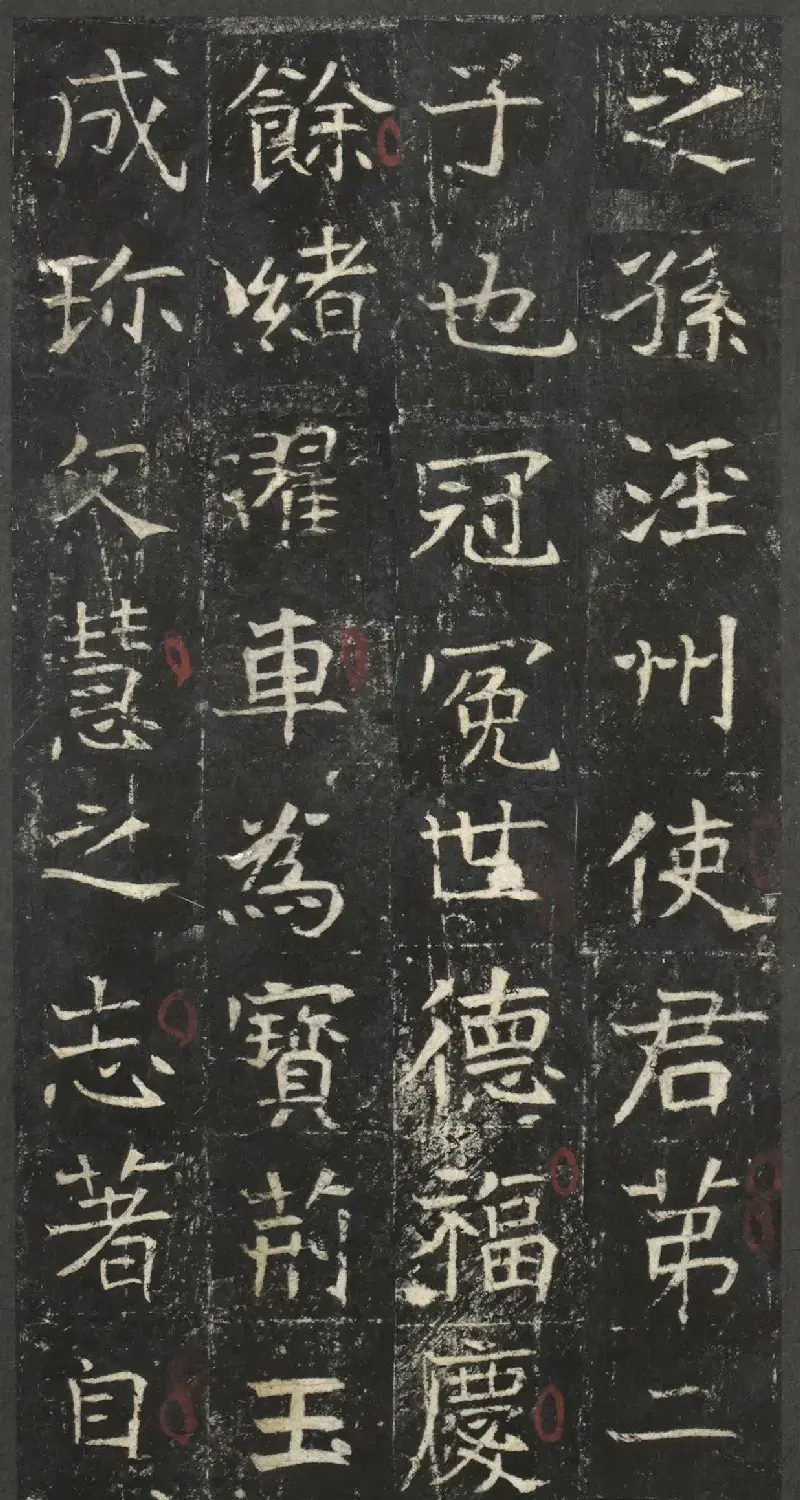 之孫涇州使君苐二
子也冠冕世德福慶
餘緒濯車為寶荊玉
成珎慧之志著自